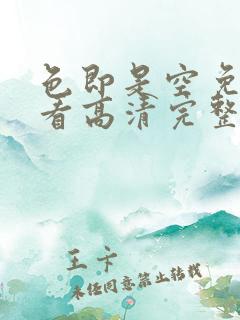 色即是空免
看高清完整
王卞
未经同意禁止转载